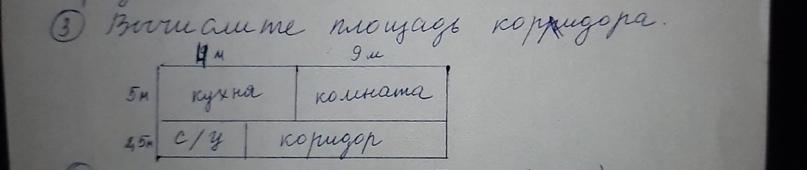 ③ Вычислите площадь корридора.
4 м 9 м
5м кухня комната
1,5м с/у коридор